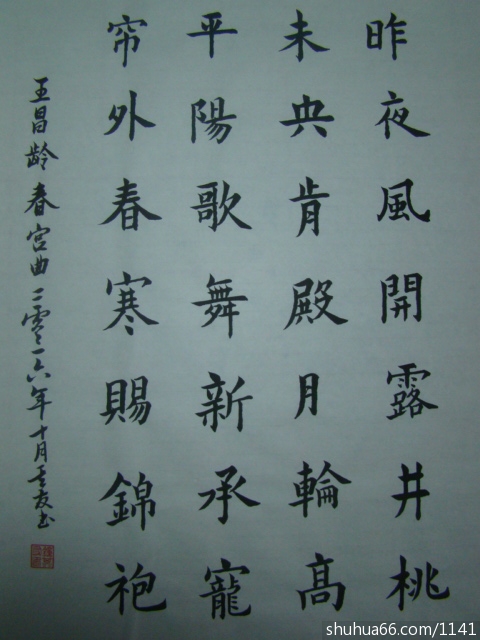 昨夜風開露井桃
未央肯殿月輪髙
平陽歌舞新承寵
帘外春寒賜錦袍
王昌龄春宫曲二零一六年十月友书
shuhua66.com/1141